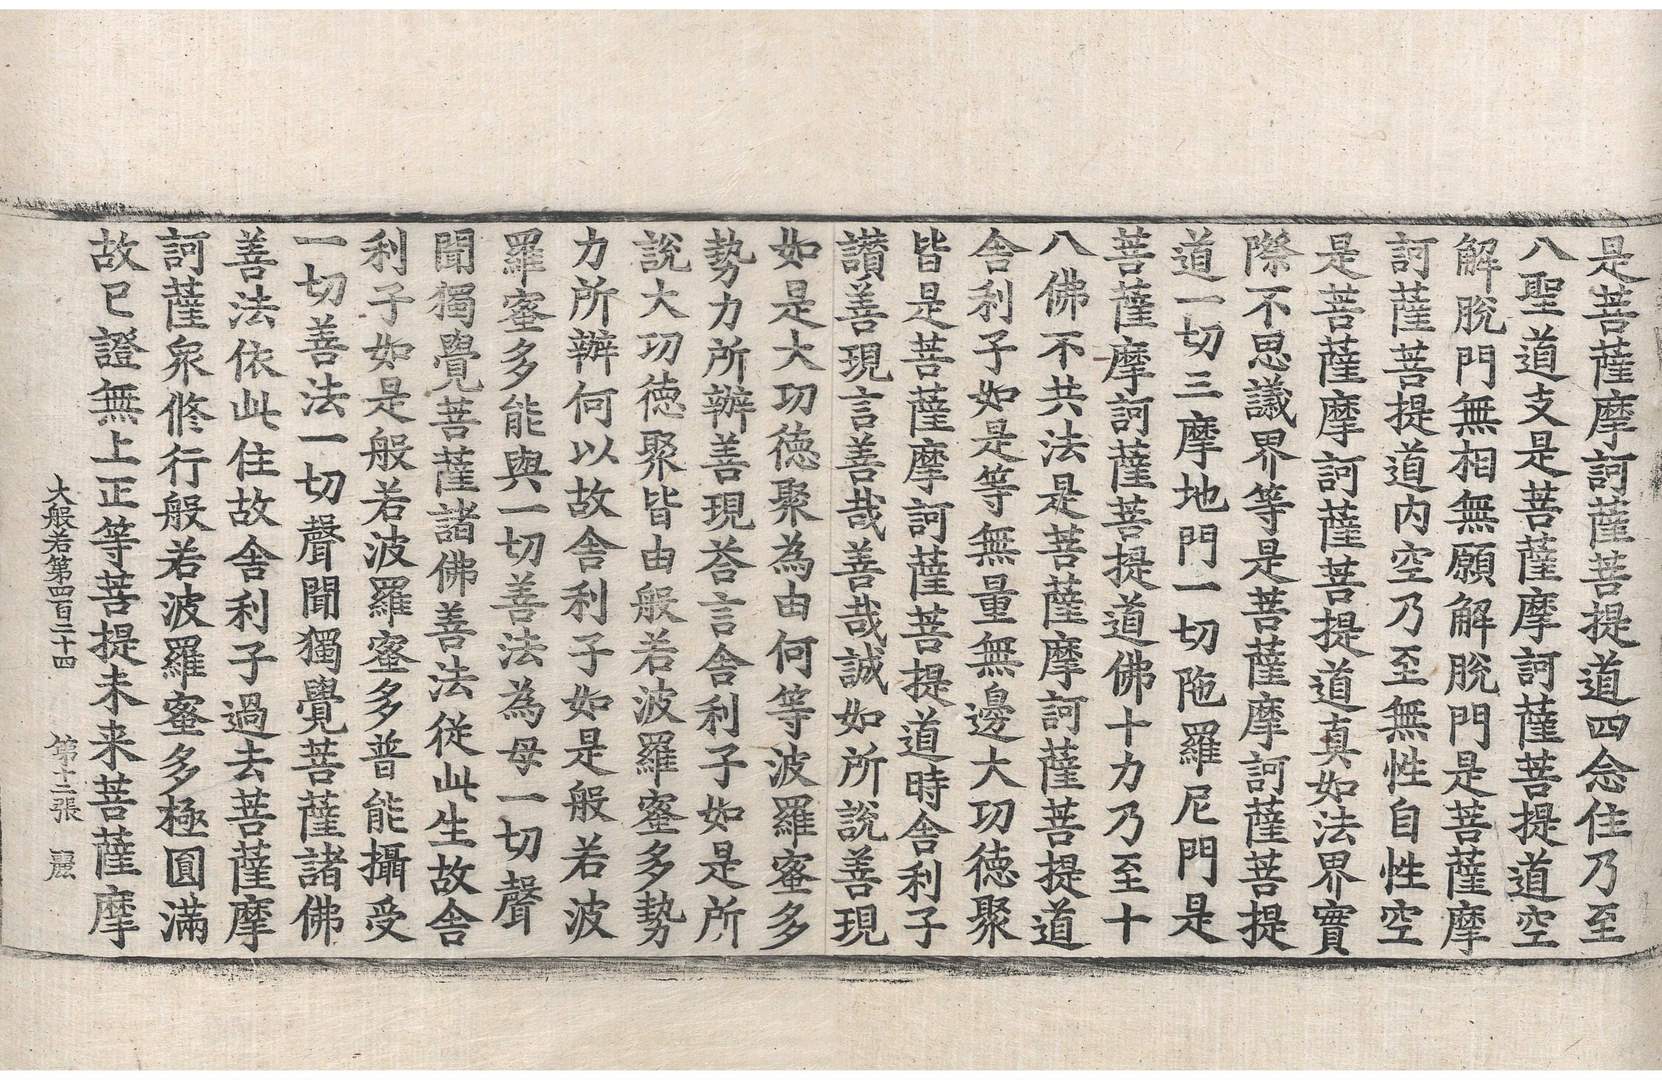 是菩薩摩訶薩菩提道四念住乃至
八聖道支是菩薩摩訶薩菩提道空
解脫門無相無願解脫門是菩薩摩
訶薩菩提道內空乃至無性自性空
是菩薩摩訶薩菩提道真如法界實
際不思議界等是菩薩摩訶薩菩提
道一切三摩地門一切陁羅尼門是
菩薩摩訶薩菩提道佛十力乃至十
八佛不共法是菩薩摩訶薩菩提道
舍利子如是等無量無邊大功德聚
皆是菩薩摩訶薩菩提道時舍利子
讃善現言善哉善哉誠如所說善現
如是大功德聚為由何等波羅蜜多
勢力所辦善現荅言舍利子如是所
說大功德聚皆由般若波羅蜜多勢
力所辦何以故舍利子如是般若波
羅蜜多能與一切善法為母一切聲
聞獨覺菩薩諸佛善法從此生故舍
利子如是般若波羅蜜多普能攝受
一切善法一切聲聞獨覺菩薩諸佛
善法依此住故舍利子過去菩薩摩
訶薩衆修行般若波羅蜜多極圓滿
故已證無上正等菩提未来菩薩摩
大般若第四百二十四 第十二張 麗